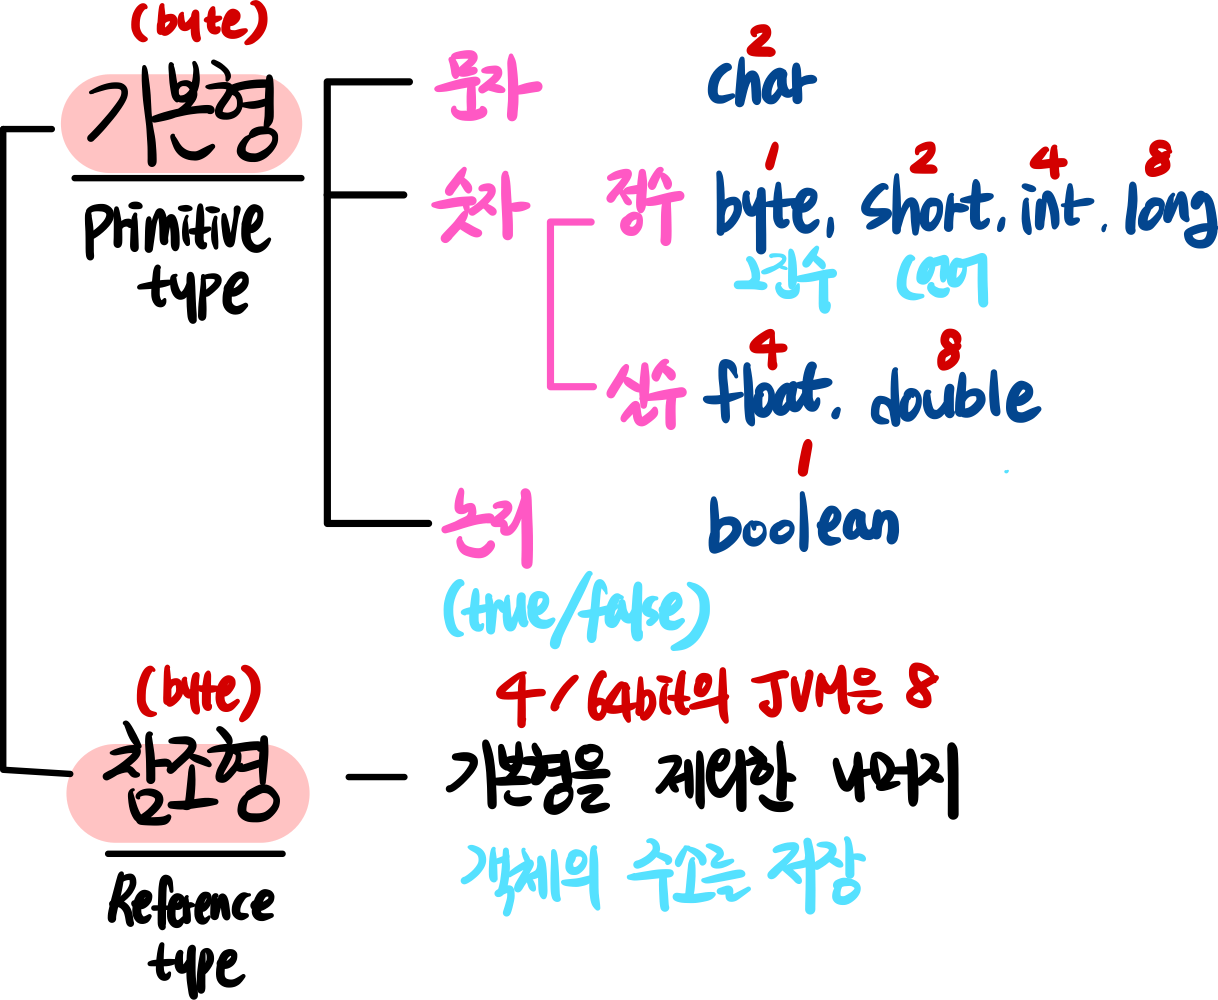 (byte)
기본형
Primitive
type
문자
2
char
숫자
정수
1 2 4 8
byte, short, int, long
2진수 C언어
실수
4 8
float, double
논리
1
boolean
(true/false)
(byte)
참조형
Reference
type
4/64bit의 JVM은 8
기본형을 제외한 나머지
객체의 주소를 저장